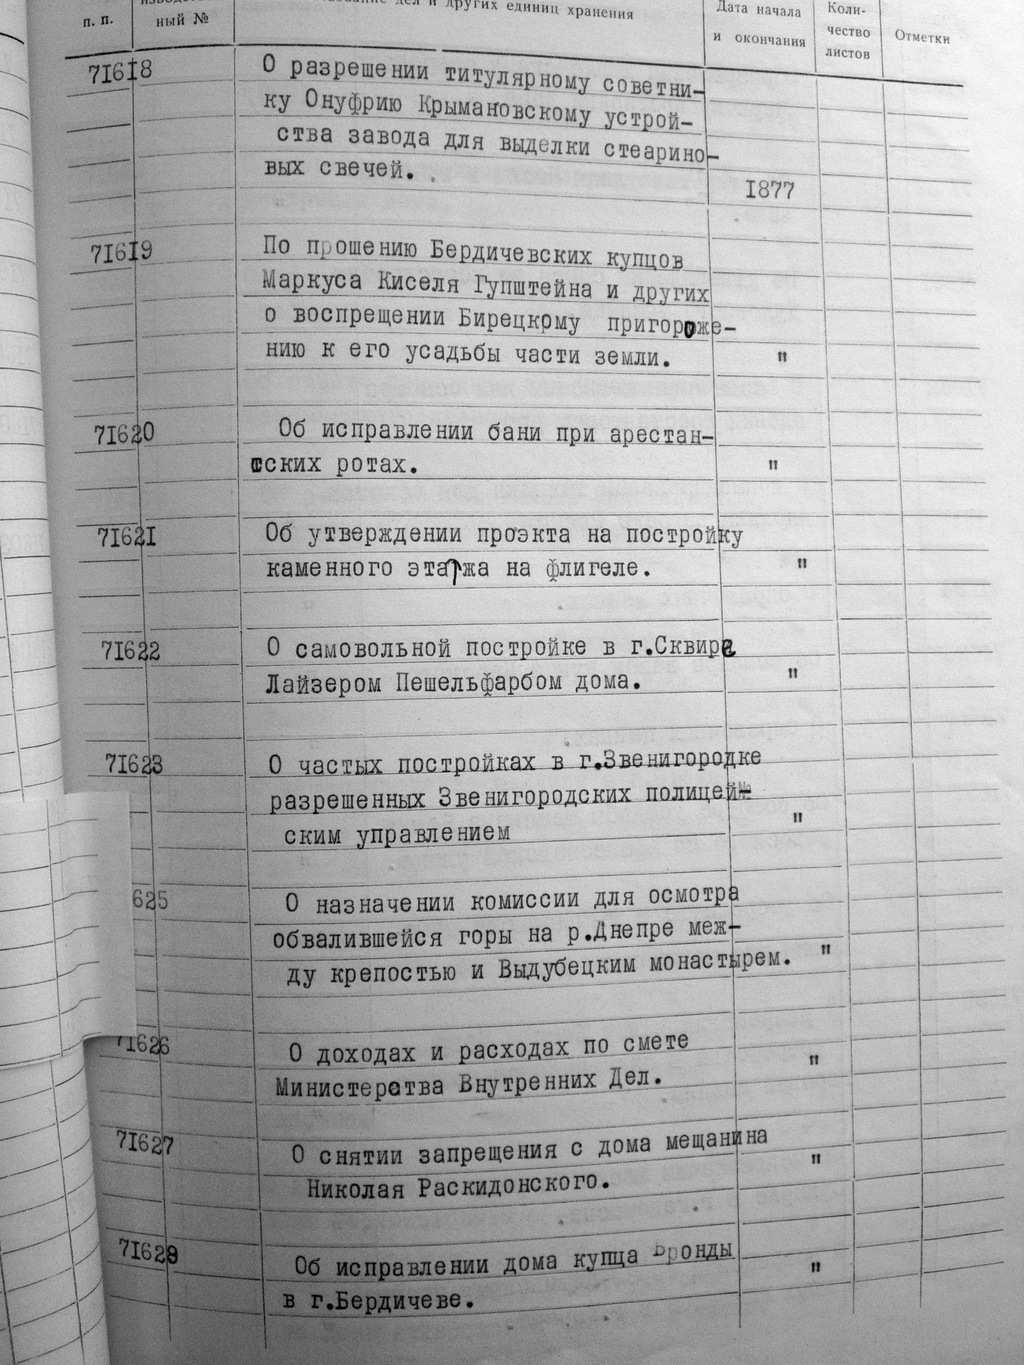 п. п.
ный №
дел и других единиц хранения
Дата начала
и окончания
Коли-
чество
листов
Отметки
71618
О разрешении титулярному советни-
ку Онуфрию Крымановскому устрой-
ства завода для выделки стеарино-
вых свечей.
1877
71619
По прошению Бердичевских купцов
Маркуса Киселя Гупштейна и других
о воспрещении Бирецкому пригороже-
нию к его усадьбы части земли. "
71620
Об исправлении бани при арестан-
сских ротах. "
71621
Об утверждении проэкта на постройку
каменного этажа на флигеле. "
71622
О самовольной постройке в г.Сквире
Лайзером Пешельфарбом дома. "
71623
О частых постройках в г.Звенигородке
разрешенных Звенигородских полицей-
ским управлением "
625
О назначении комиссии для осмотра
обвалившейся горы на р.Днепре меж-
ду крепостью и Выдубецким монастырем. "
71626
О доходах и расходах по смете
Министерства Внутренних Дел. "
71627
О снятии запрещения с дома мещанина
Николая Раскидонского. "
71629
Об исправлении дома купца Бронды
в г.Бердичеве. "